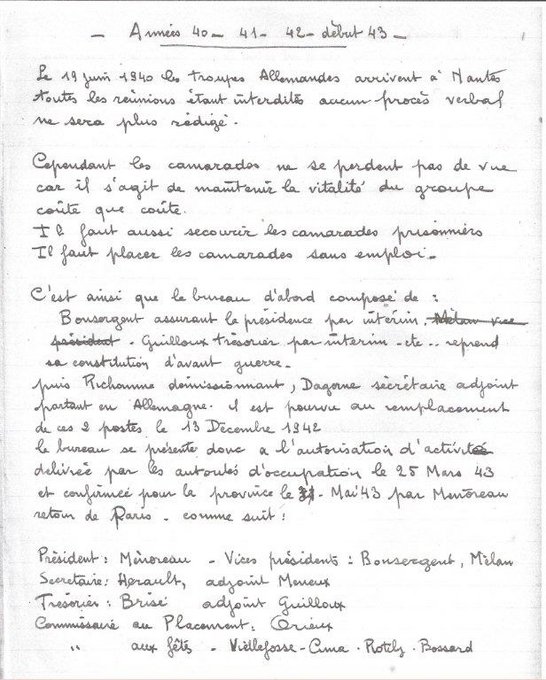 - Années 40 - 41 - 42 - début 43 -
Le 19 juin 1940 les troupes Allemandes arrivent à Nantes
toutes les réunions étant interdites aucun procès verbal
ne sera plus rédigé.
Cependant les camarades ne se perdent pas de vue
car il s'agit de maintenir la vitalité du groupe
coûte que coûte.
Il faut aussi secourir les camarades prisonniers
Il faut placer les camarades sans emploi -
C'est ainsi que le bureau d'abord composé de :
Bonsergent assurant la présidence par intérim, Mèlan vice
président - Guilloux trésorier par interim - etc .. reprend
sa constitution d'avant guerre -
puis Richomme démissionnant, Dagorne sécrétaire adjoint
partant en Allemagne. il est pourvu au remplacement
de ces 2 postes le 13 Décembre 1942
le bureau se présente donc a l'autorisation d'activité
délivrée par les autorités d'occupation le 25 Mars 43
et confirmée pour la province le 31 - Mai 43 par Menoreau
retour de Paris - comme suit :
Président : Ménoreau - Vices présidents : Bonsergent, Mèlan
Secretaire : Herault, adjoint Meneux
Trésorier : Brisé adjoint Guilloux
Commissaire au Placement : Orieux
" aux fêtes - Viellefosse - Cima - Rotily - Bossard